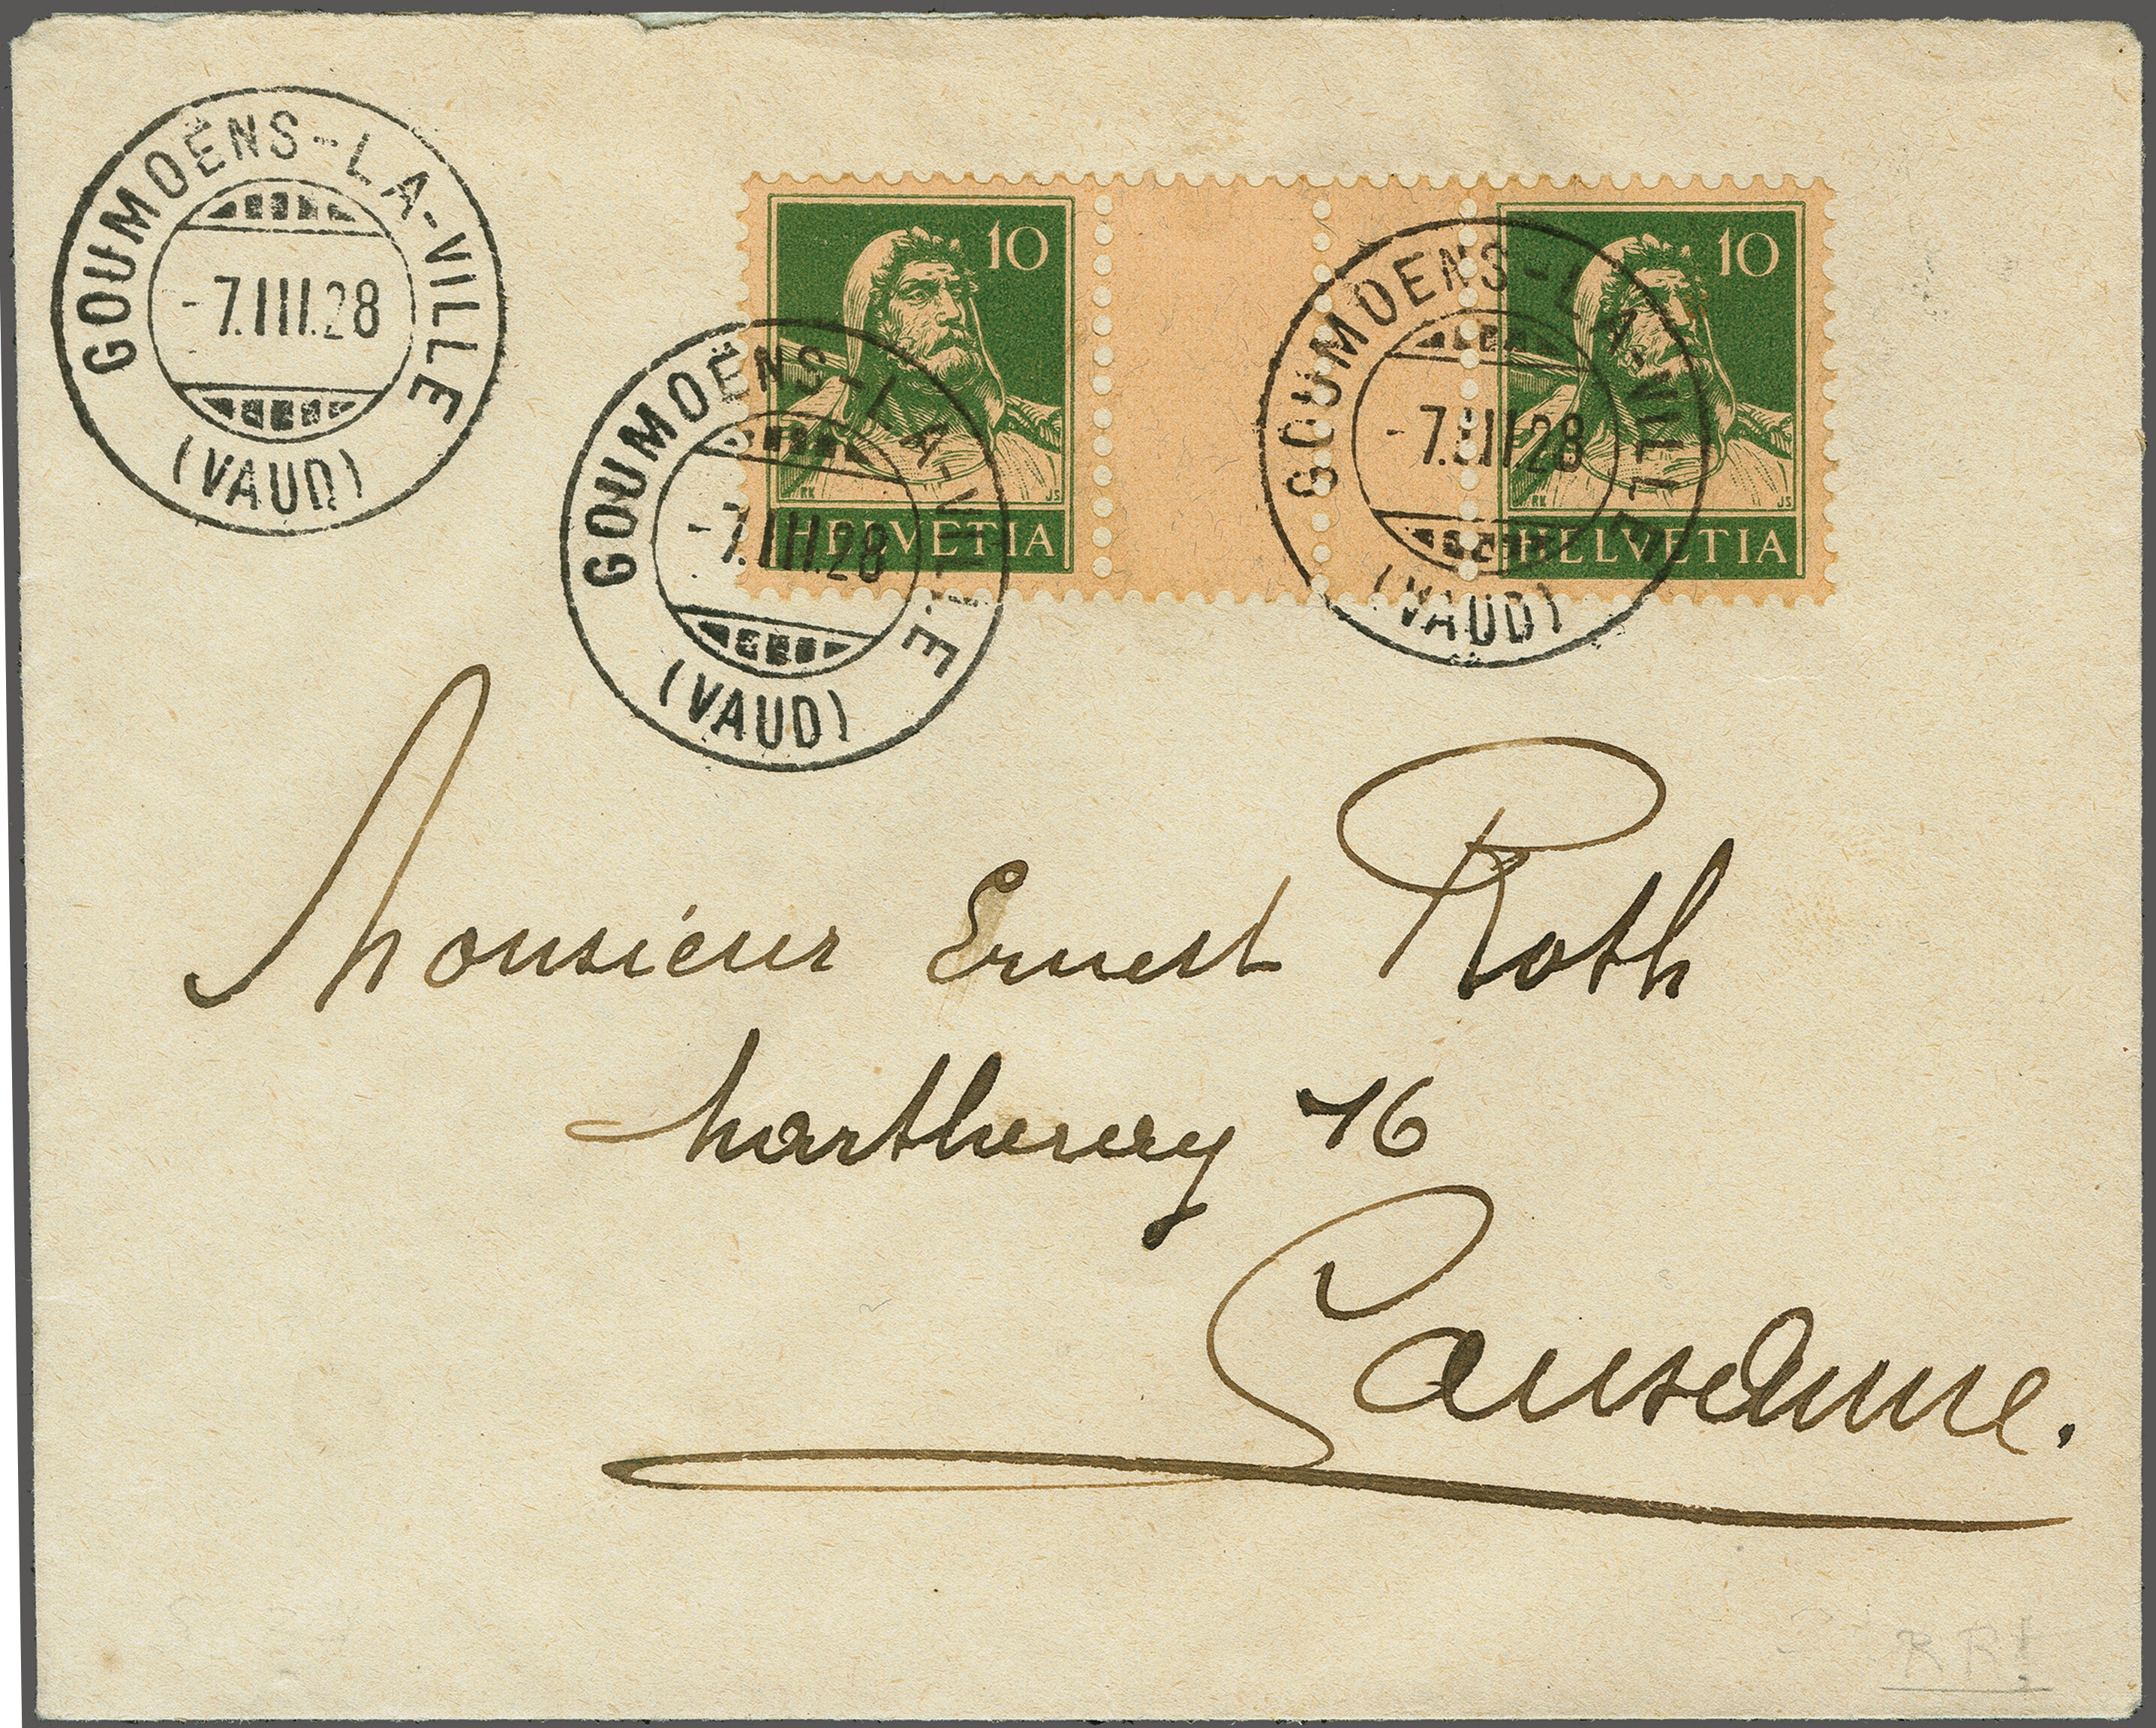 GOUMOËNS-LA-VILLE
-7.III.28
(VAUD)
10
RK JS
HELVETIA
GOUMOËNS-LA-VILLE
-7.III.28
(VAUD)
10
RK JS
HELVETIA
GOUMOËNS-LA-VILLE
-7.III.28
(VAUD)
Monsieur Ernest Roth
Martherey 46
Lausanne.
RR!